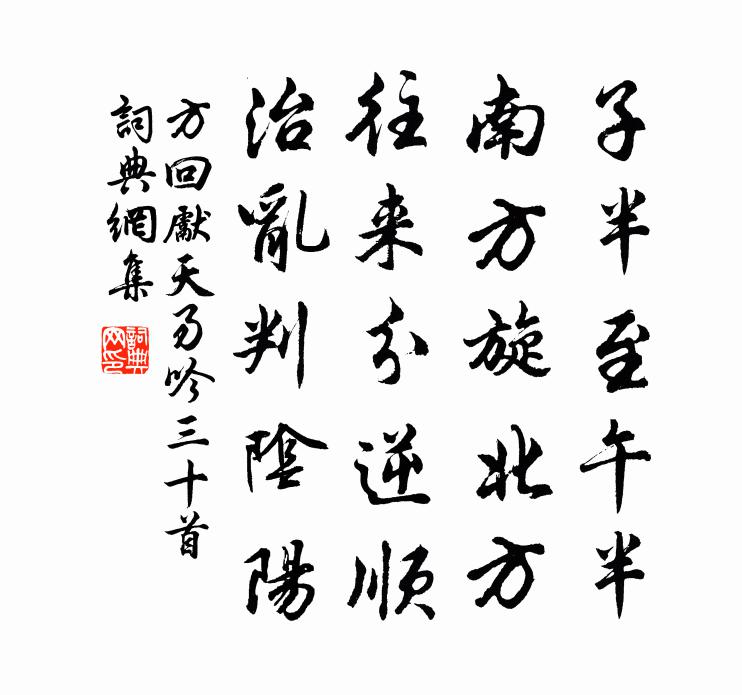 子半至午半
南方旋北方
往来分逆順
治亂判陰陽
方回獻天易吟三十首
詞典網集
詞典网印